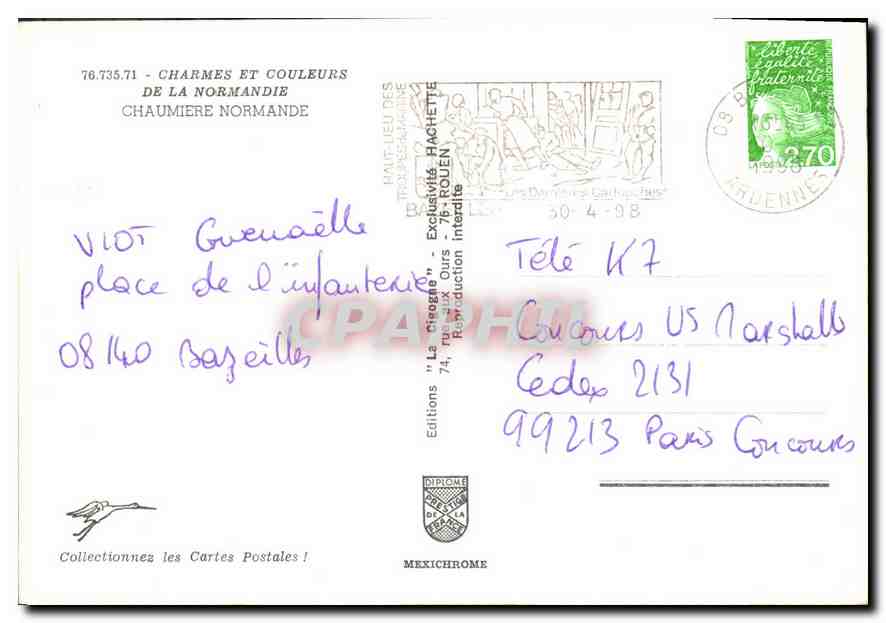 76.735.71 - CHARMES ET COULEURS
DE LA NORMANDIE
CHAUMIERE NORMANDE
VIOT Guenaëlle
place de l'infanterie
08140 Bazeilles
Collectionnez les Cartes Postales !
Editions "La Cigogne" - Exclusivité HACHETTE
74, rue aux Ours - 76-ROUEN
Reproduction interdite
HAUT-LIEU DES
TROUPES DE MARINE
"Les Dernières Cartouches"
30-4-98
08 B
1998
ARDENNES
liberté
égalité
fraternité
LA POSTE
2,70
Télé K7
Concours US Marshalls
Cedex 2131
99213 Paris Concours
DIPLOME
PRESTIGE
DE LA
FRANCE
MEXICHROME
CPAPHIL